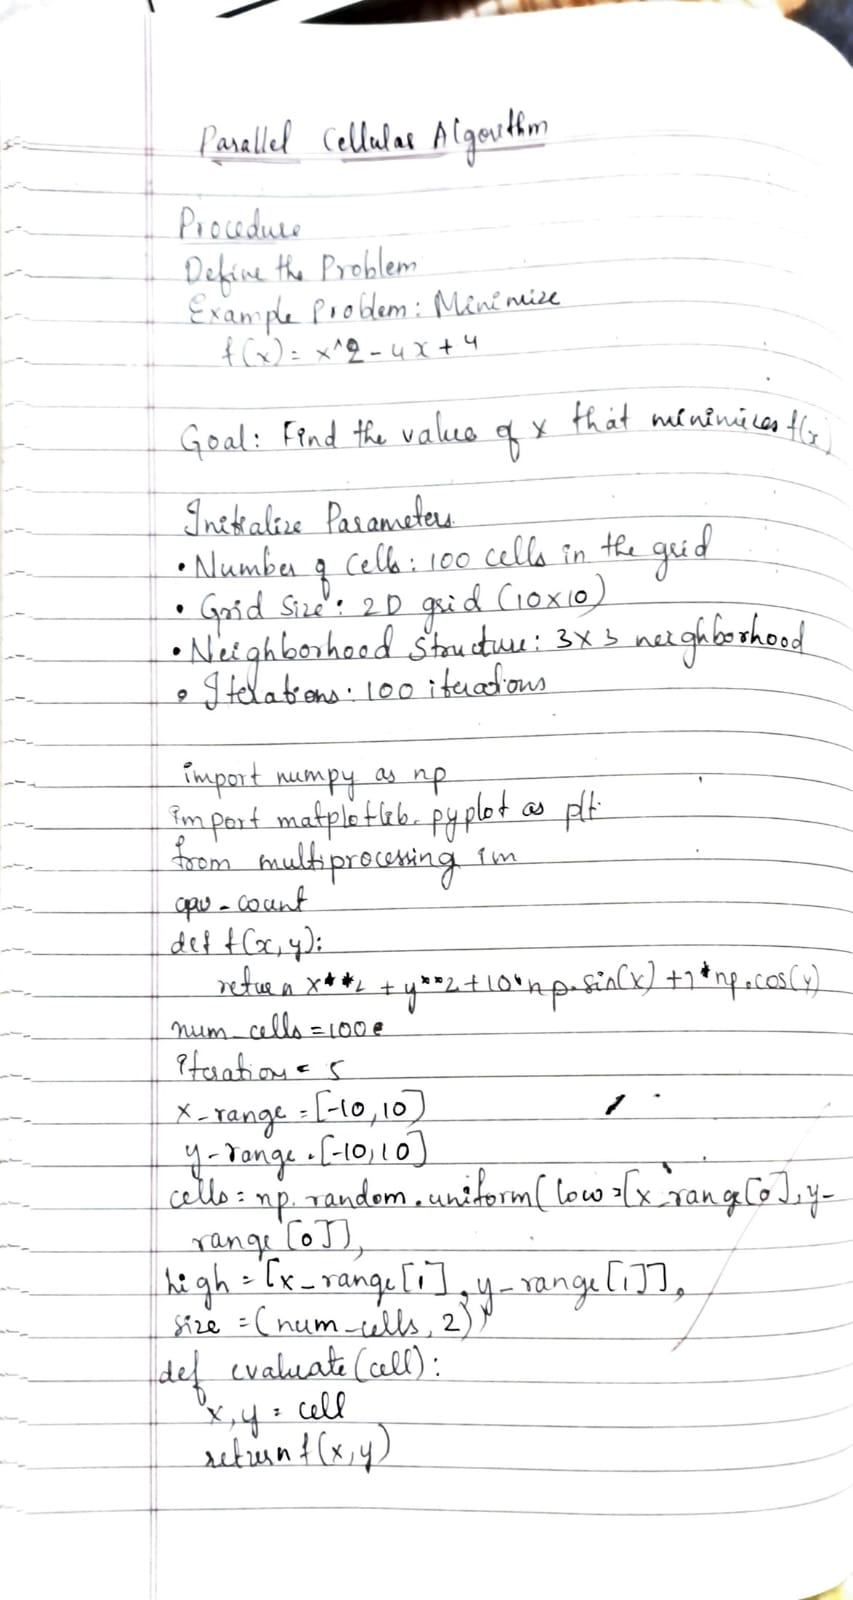 Parallel Cellular Algorithm
Procedure
Define the Problem
Example Problem: Minimize
f(x) = x^2 - 4x + 4
Goal: Find the value of x that minimizes f(x)
Initialize Parameters
• Number of Cells: 100 cells in the grid
• Grid Size: 2D grid (10x10)
• Neighborhood Structure: 3x3 neighborhood
• Iterations: 100 iterations
import numpy as np
import matplotlib.pyplot as plt
from multiprocessing im
cpu-count
def f(x,y):
return x**2 + y**2 + 10*np.sin(x) + 7*np.cos(y)
num_cells = 100
iteration = 5
x-range = [-10,10]
y-range = [-10,10]
cells = np.random.uniform(low=[x_range[0], y-
range[0]],
high = [x-range[1], y-range[1]],
size = (num-cells, 2))
def evaluate(cell):
x,y = cell
return f(x,y)